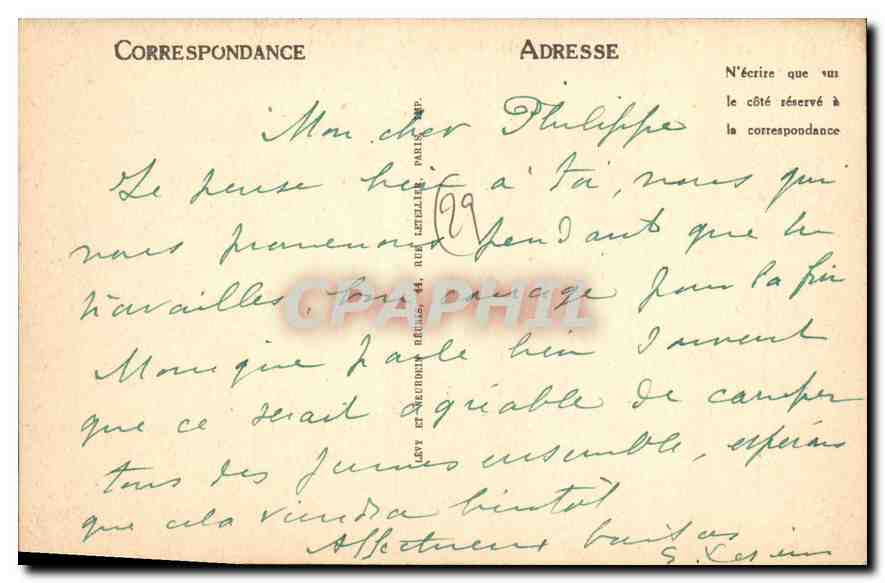 CORRESPONDANCE
ADRESSE
N'écrire que sur
le côté réservé à
la correspondance
LÉVY ET NEURDEIN RÉUNIS, 44, RUE LETELLIER, PARIS IMP.
(29
Mon cher Philippe
Je pense bien à toi, nous qui
nous promenons pendant que tu
travailles, bon courage pour la fin
Monique parle bien souvent
que ce serait agréable de camper
tous des jeunes ensemble, espérons
que cela viendra bientôt
Affectueux baisers
CPAPHIL